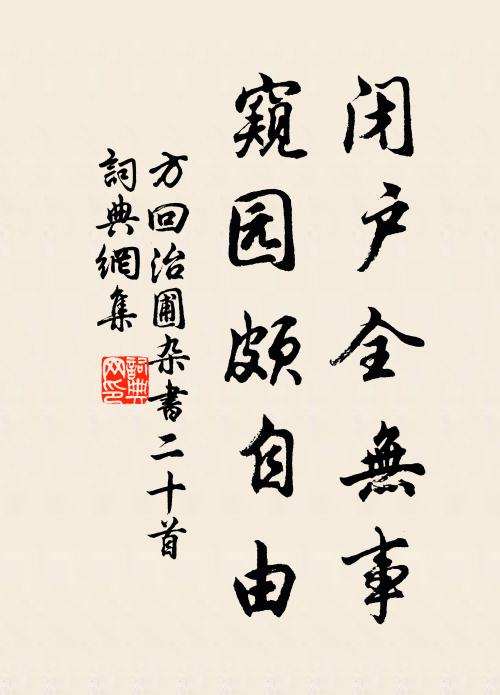 闭户全無事
窥园颇自由
方回治圃杂書二十首
詞典網集
詞典网印